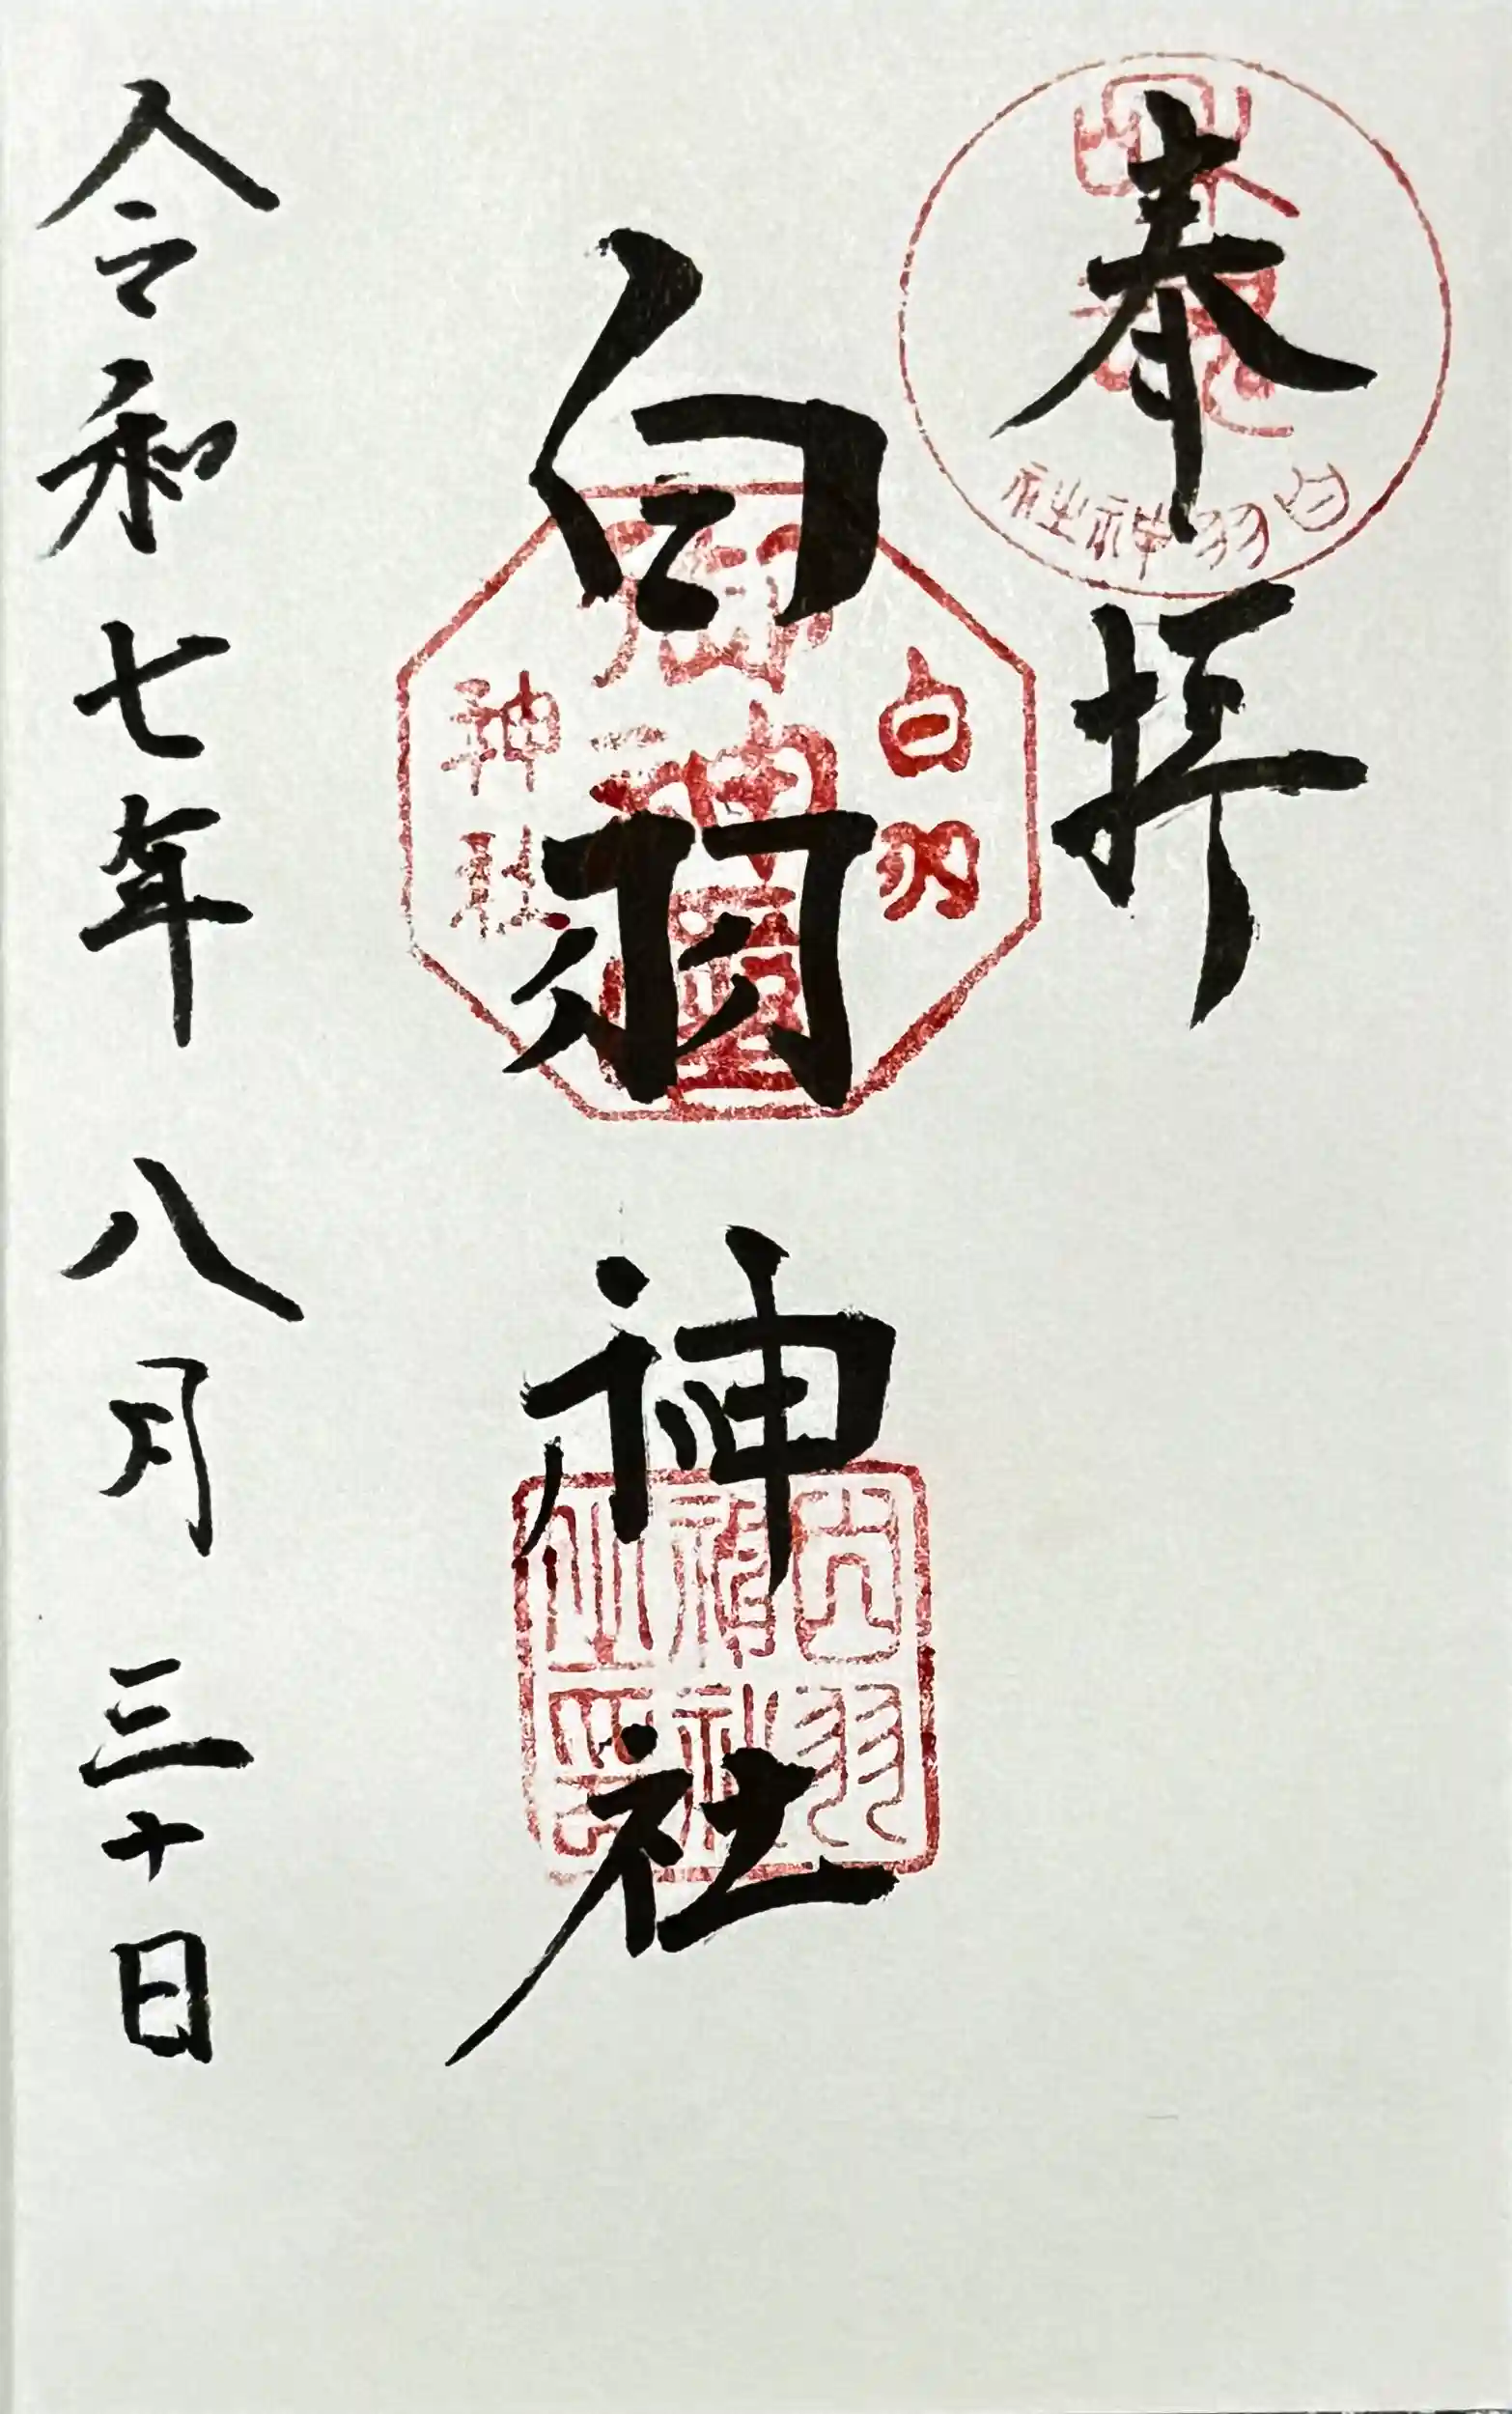 奉拝
白羽神社
白羽神社
白羽
御神璽
神社
白羽
神社
之印
令和七年八月三十日